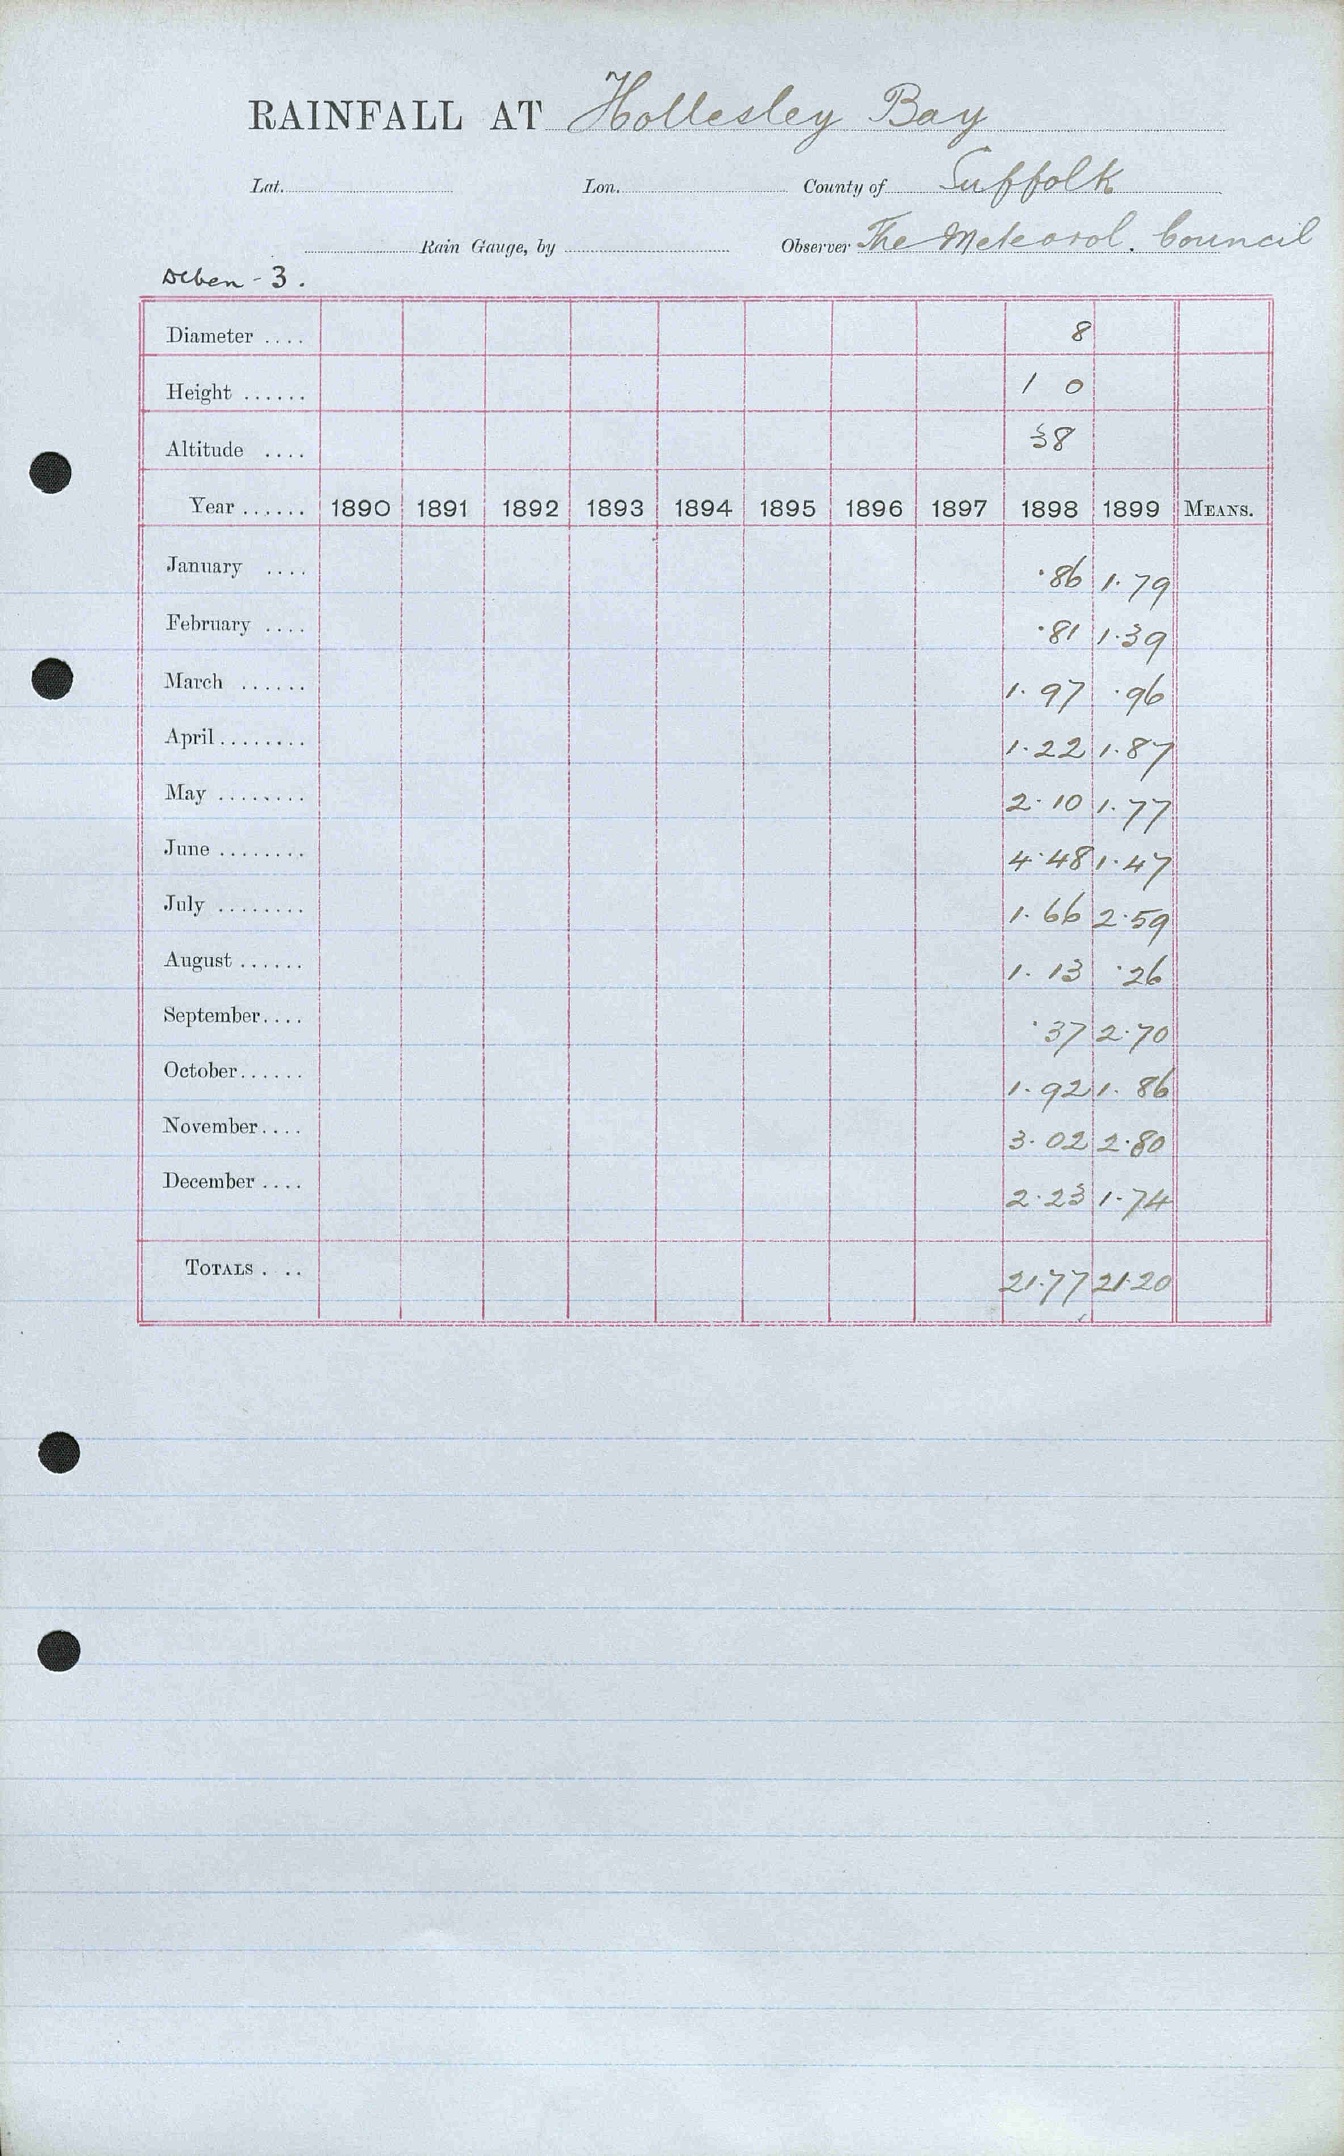 RAINFALL AT Hollesley Bay
Lat. Lon. County of Suffolk
Rain Gauge, by Observer The Meteorol. Council
Deben - 3.
Diameter .... 8
Height ...... 1 0
Altitude .... 38
Year ...... 1890 1891 1892 1893 1894 1895 1896 1897 1898 1899 MEANS.
January .... .86 1.79
February .... .81 1.39
March ...... 1.97 .96
April........ 1.22 1.87
May ........ 2.10 1.77
June ........ 4.48 1.47
July ........ 1.66 2.59
August ...... 1.13 .26
September.... .37 2.70
October...... 1.92 1.86
November.... 3.02 2.80
December .... 2.23 1.74
TOTALS . .. 21.77 21.20